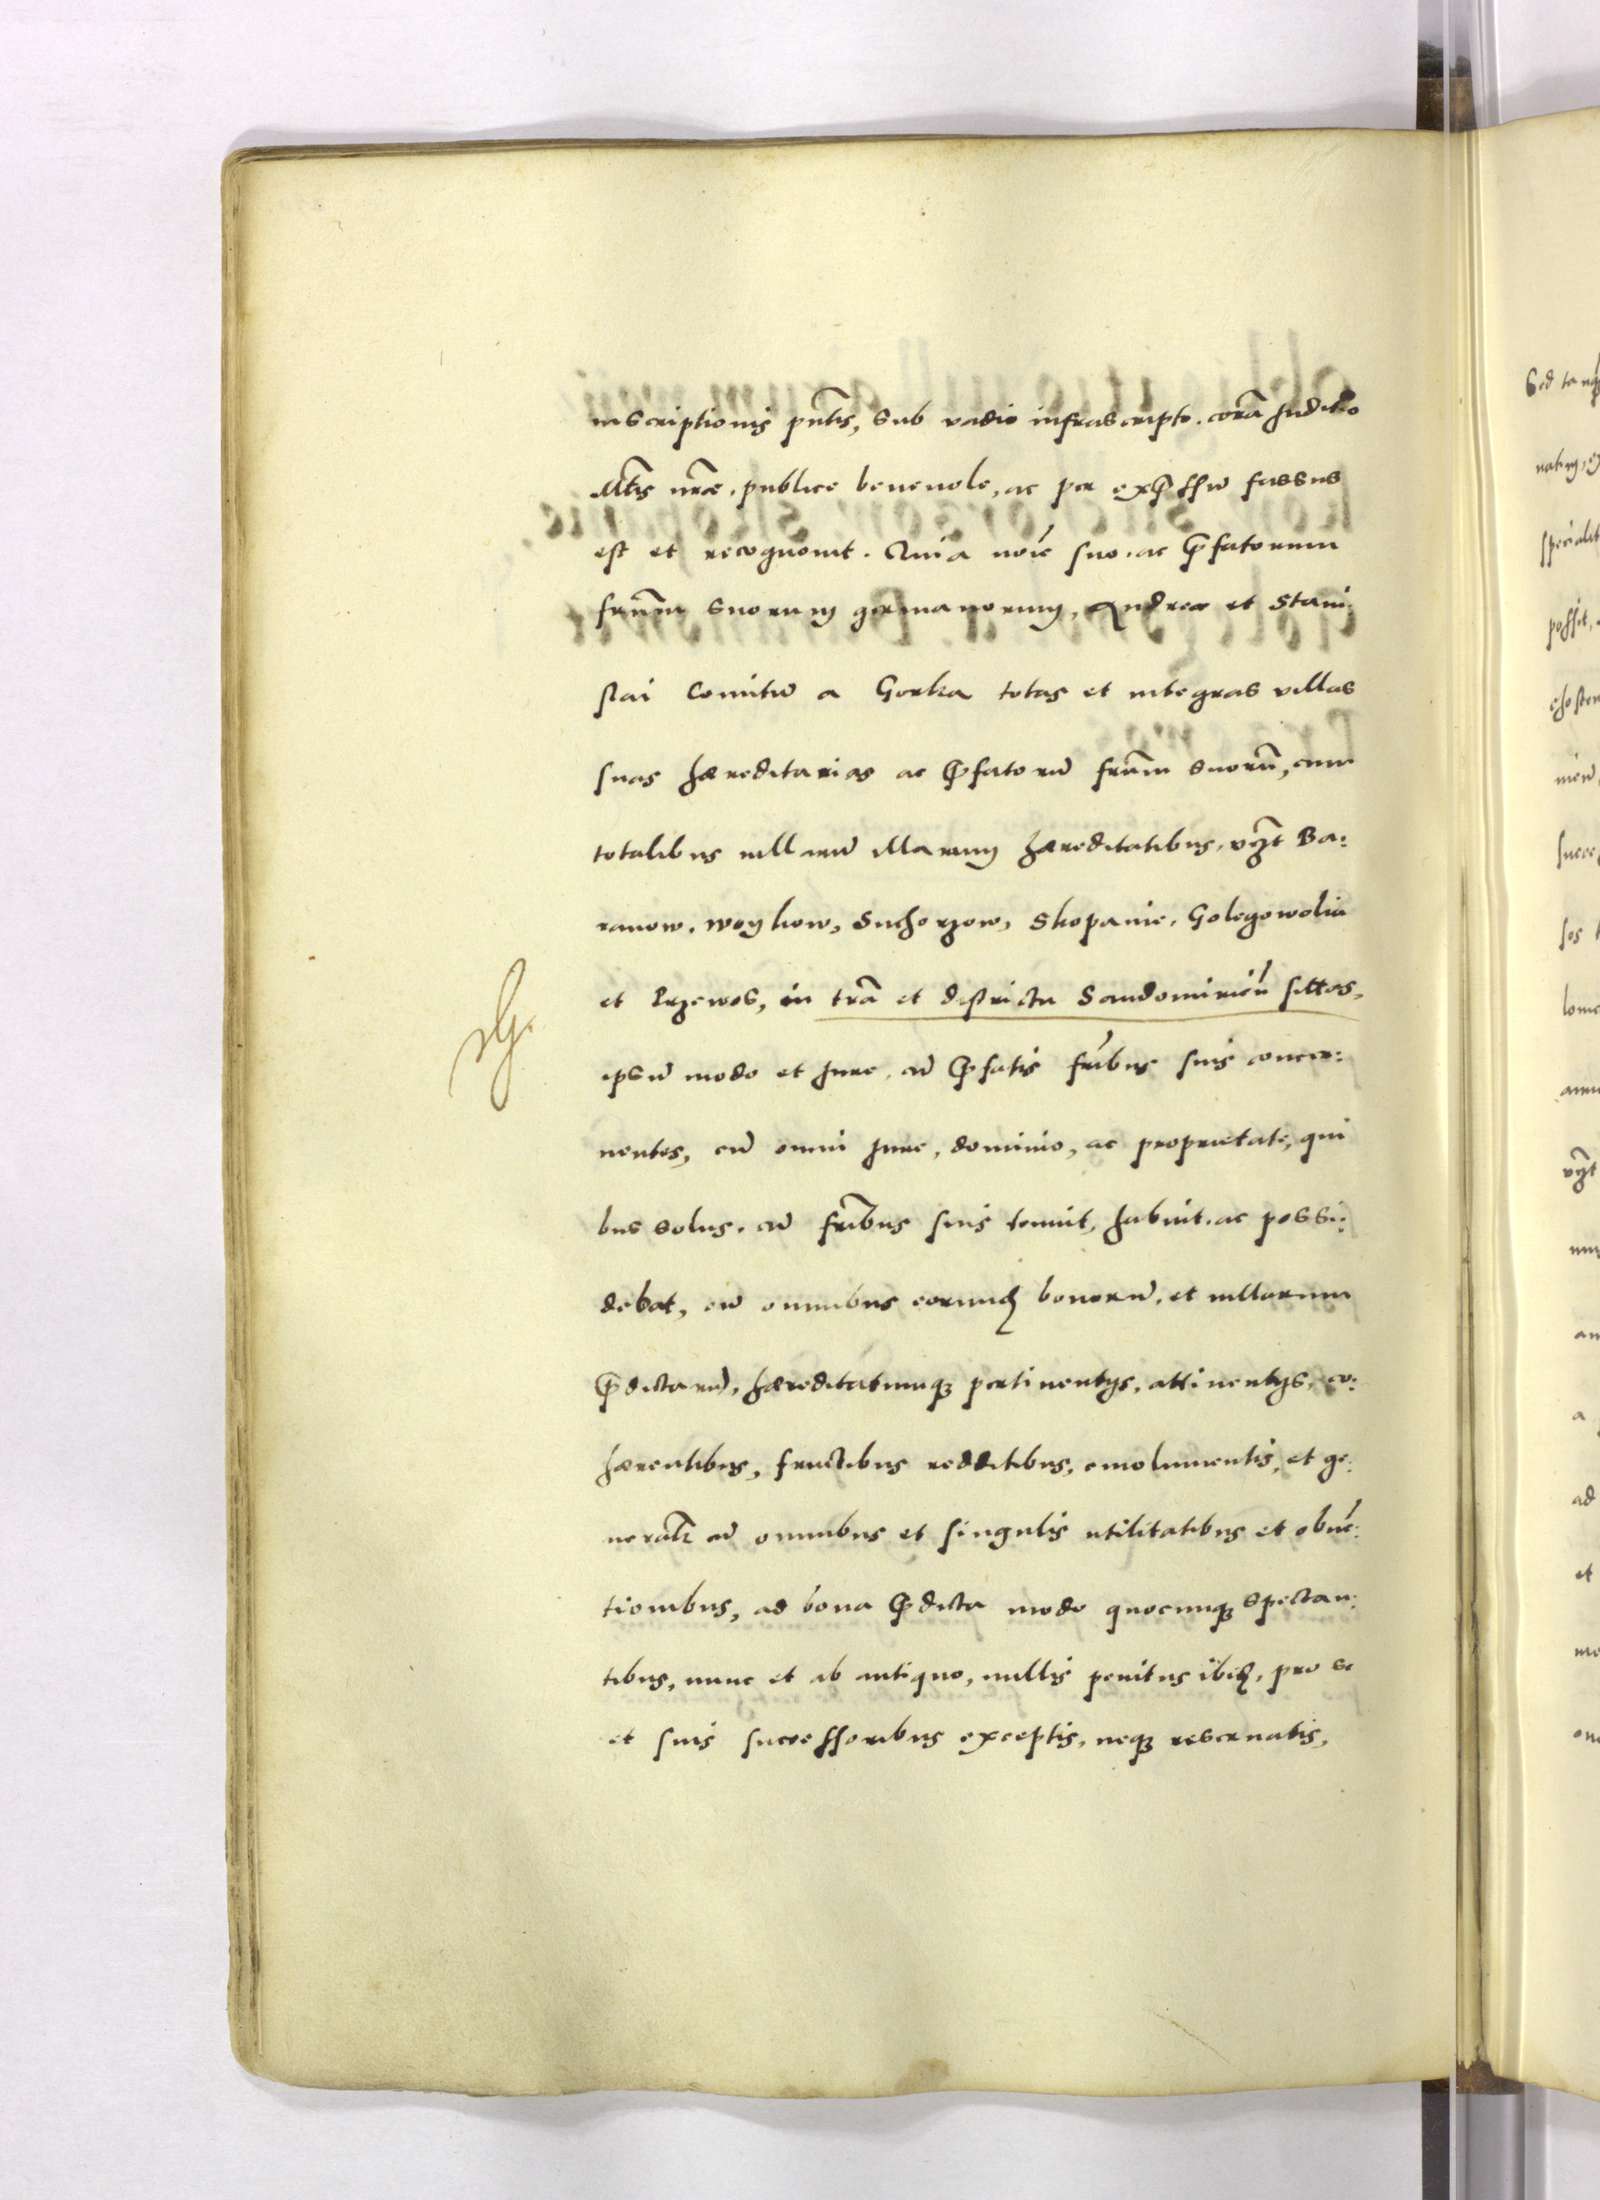 inscriptionis pñtis, sub vadio infrascripto. corã Juditio
Mtis nrae. publice benevole, ac per expssũ fassus
est et recognovit. Quia noie suo. ac pfatorum
frũm suorum germanorum, Andreae et Stani
slai Comitũ a Gorka totas et integras villas
suas haereditarias ac pfatorũ frũm suorũ, cum
totalibus villarũ illarum haereditatibus, vzt Ba:
ranow. woykow, Suchorzow, Skopanie, Golegowolia
et Przewos, in trã et districtu Sandomirieñ sittas,
ipsũ modo et Jure, cũ pfatis fribus suis concer:
nentes, cũ omni Jure, dominio, ac proprietate, qui
bus solus. cũ fribus suis tenuit, habuit. ac possi:
debat, cũ omnibus eorund bonorũ. et villarum
pdictarũ, haereditatumq pertinentys, attinentys, co:
haerentibus, fructibus redditibus, emolumentis, et ge:
neralr cũ omnibus et singulis utilitatibus et obvẽ:
tionibus, ad bona pdicta modo quocunq spectan:
tibus, nunc et ab antiquo, nullis penitus ibid, pro se
et suis successoribus exceptis, neq reservatis,